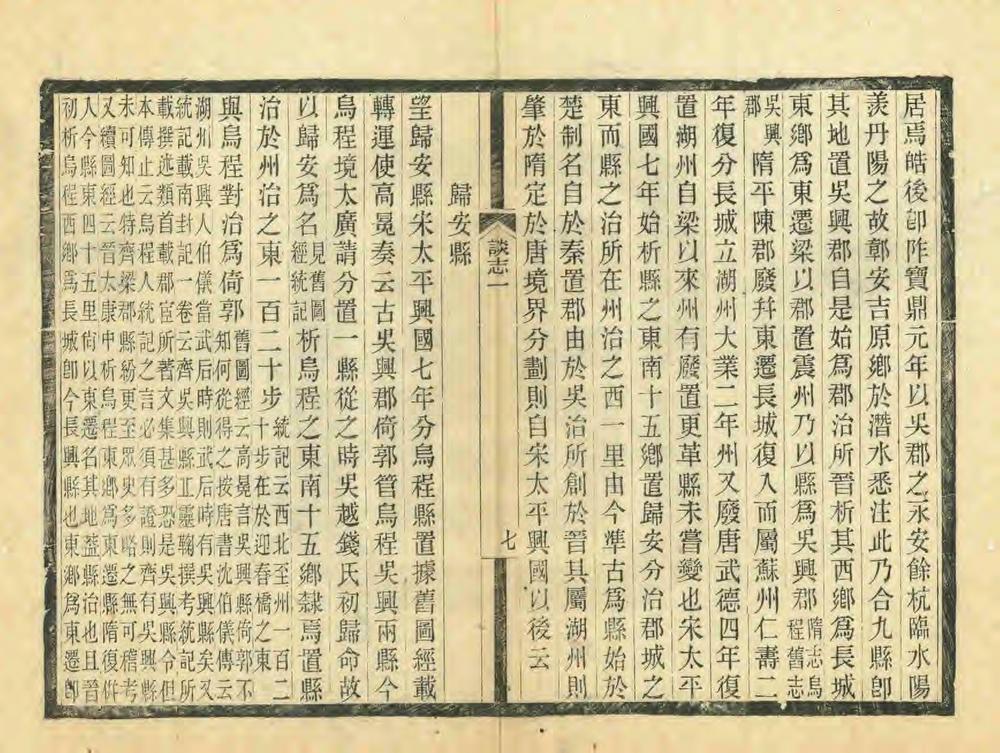 居焉皓後卽阼寶鼎元年以吳郡之永安餘杭臨水陽
羨丹陽之故鄣安吉原鄉於潛水悉注此乃合九縣卽
其地置吳興郡自是始爲郡治所晉析其西鄉爲長城
東鄉爲東遷梁以郡置震州乃以縣爲吳興郡隋志烏程舊志
吳興郡隋平陳郡廢幷東遷長城復入而屬蘇州仁壽二
年復分長城立湖州大業二年州又廢唐武德四年復
置湖州自梁以來州有廢置更革縣未嘗變也宋太平
興國七年始析縣之東南十五鄉置歸安分治郡城之
東而縣之治所在州治之西一里由今準古爲縣始於
楚制名自於秦置郡由於吳治所創於晉其屬湖州則
肇於隋定於唐境界分劃則自宋太平興國以後云
談志一
七
歸安縣
望歸安縣宋太平興國七年分烏程縣置據舊圖經載
轉運使高冕奏云古吳興郡倚郭管烏程吳興兩縣今
烏程境太廣請分置一縣從之時吳越錢氏初歸命故
以歸安爲名見舊圖經統記析烏程之東南十五鄉隸焉置縣
治於州治之東一百二十步統記云西北至州一百二十步在於迎春橋之東
與烏程對治爲倚郭舊圖經云高冕言吳興縣倚郭不知何從得之按唐書沈伯儀傳云
湖州吳興人伯儀當武后時則武后時有吳興縣矣又
統記載南封記一卷云齊吳興縣正靈鞠撰考統記所
載撰述類首載郡臣所著文集甚多恐是吳興縣令但
本傳止云烏程人統記之言必須有證則齊有吳興縣
未可知也特齊梁郡縣紛更至眾史多略之無可稽考
又續圖經云晉太康中析烏程東鄉爲東遷縣隋復倂
入今縣東四十五里尙以東遷名其地蓋縣治也且晉
初析烏程西鄉爲長城卽今長興縣也東鄉爲東遷卽